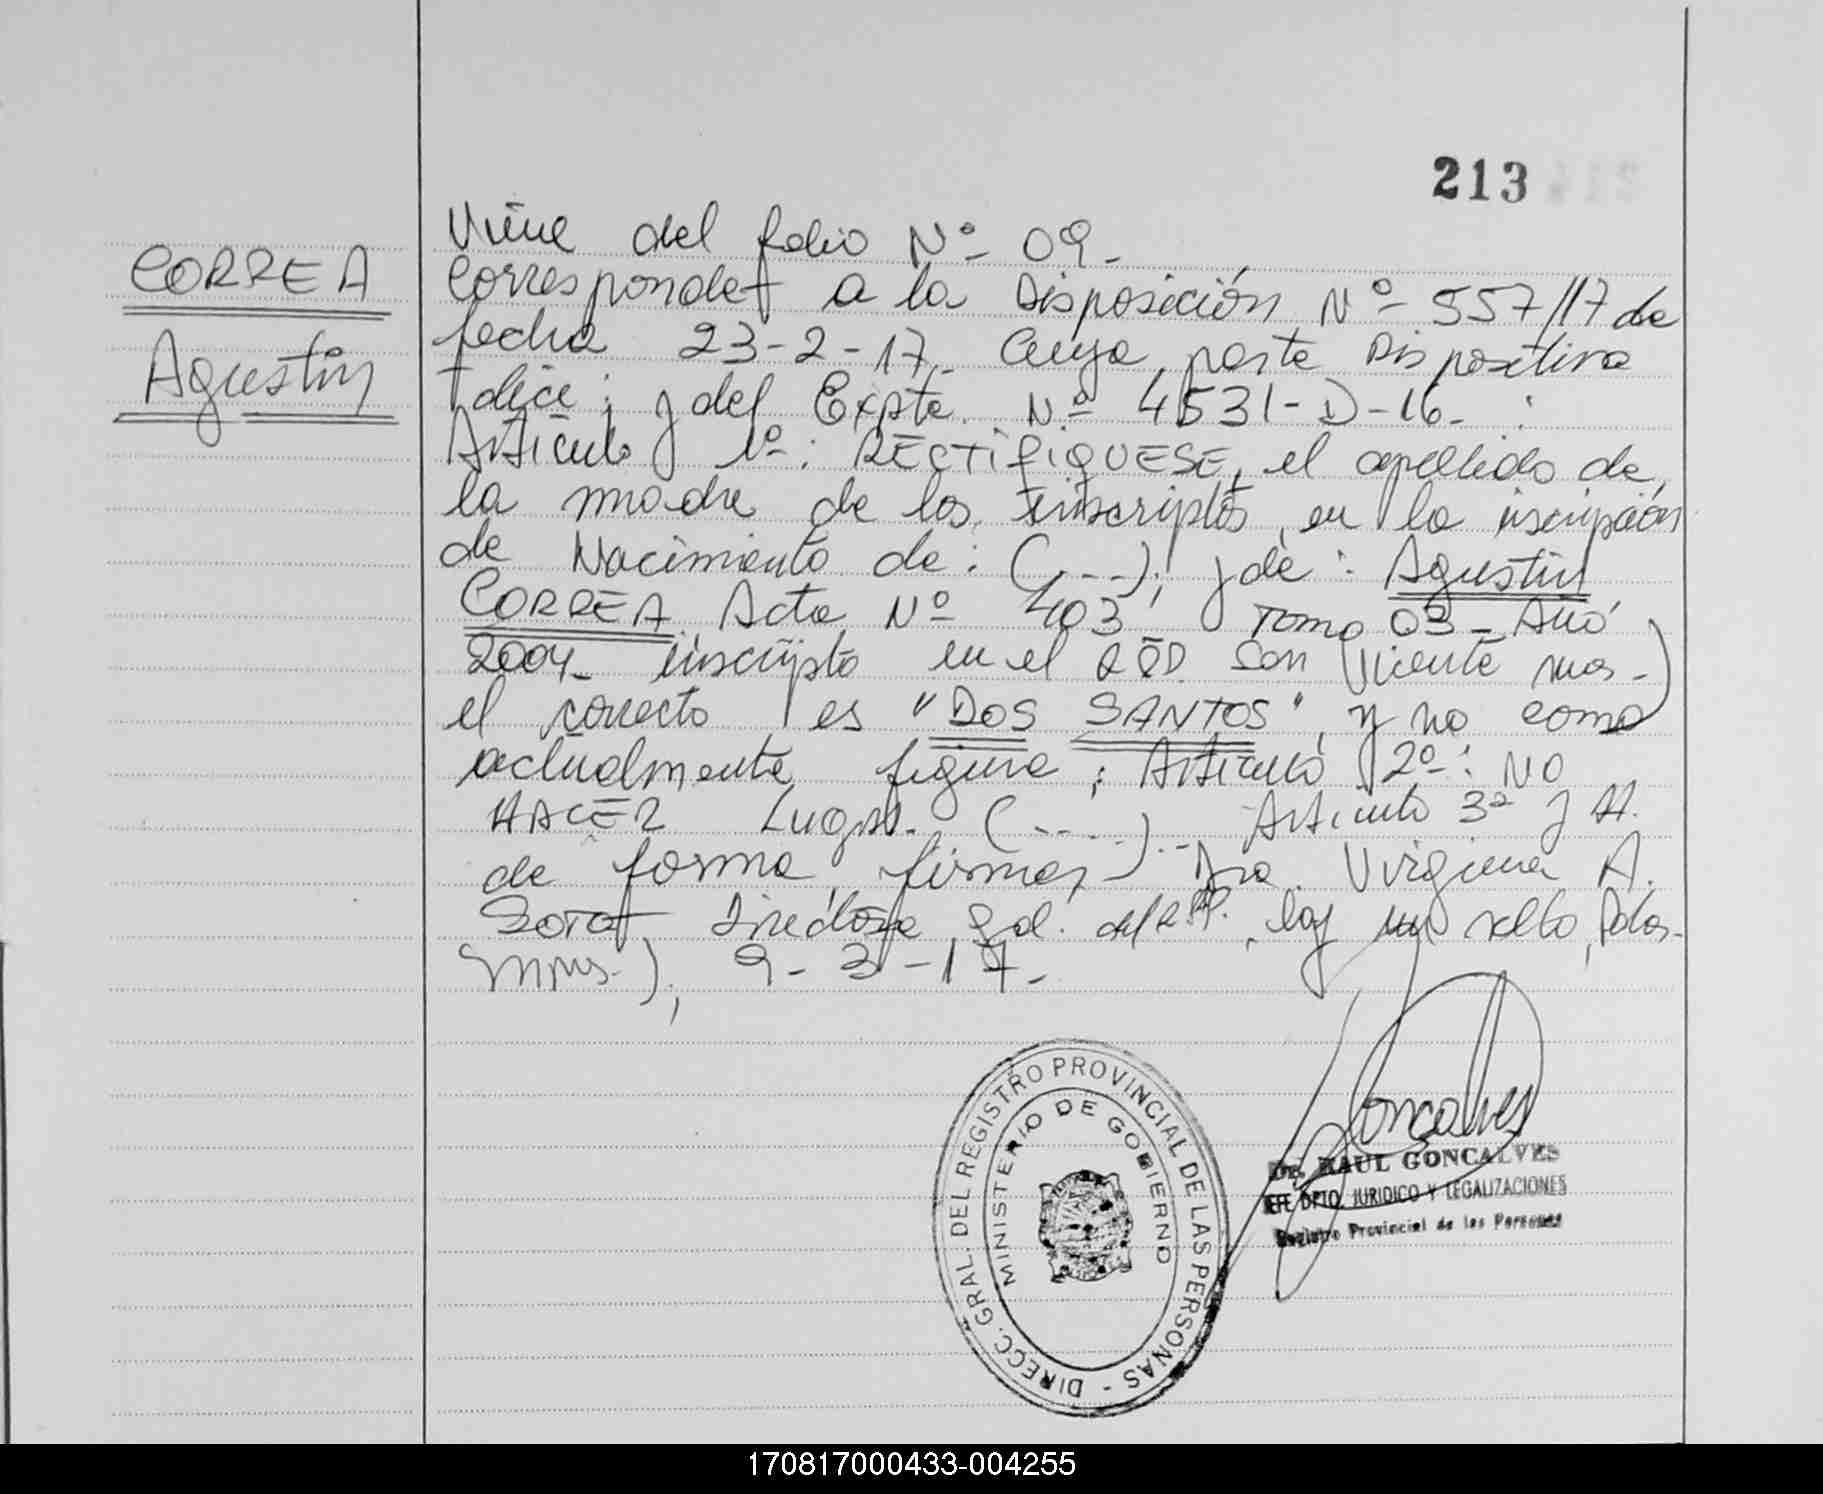 213
CORREA
Agustín
Viene del folio Nº 09.
Corresponde a la Disposición Nº 557/17 de
fecha 23-2-17. Cuya parte Dispositiva
dice: y del Expte. Nº 4531-D-16- :
Artículo 1º: RECTIFIQUESE, el apellido de
la madre de los inscriptos, en la inscripción
de Nacimiento de: (...); y de: Agustín
CORREA Acta Nº 403 Tomo 03 - Año
2004- inscripto en el San Vicente Mns-)
el correcto es "DOS SANTOS", y no como
actualmente figura; Artículo 2º: NO
HACER Lugar. (....)-. Artículo 3º y
de forma, firma) Dra. Virginia A.
Directora Gral. del hay un sello, Pdas-
Mns.), 9-3-17.-
DIRECC. GRAL. DEL REGISTRO PROVINCIAL DE LAS PERSONAS -
MINISTERIO DE GOBIERNO
Goncalves
Dr. RAUL GONCALVES
JEFE DPTO. JURIDICO Y LEGALIZACIONES
Registro Provincial de las Personas
170817000433-004255